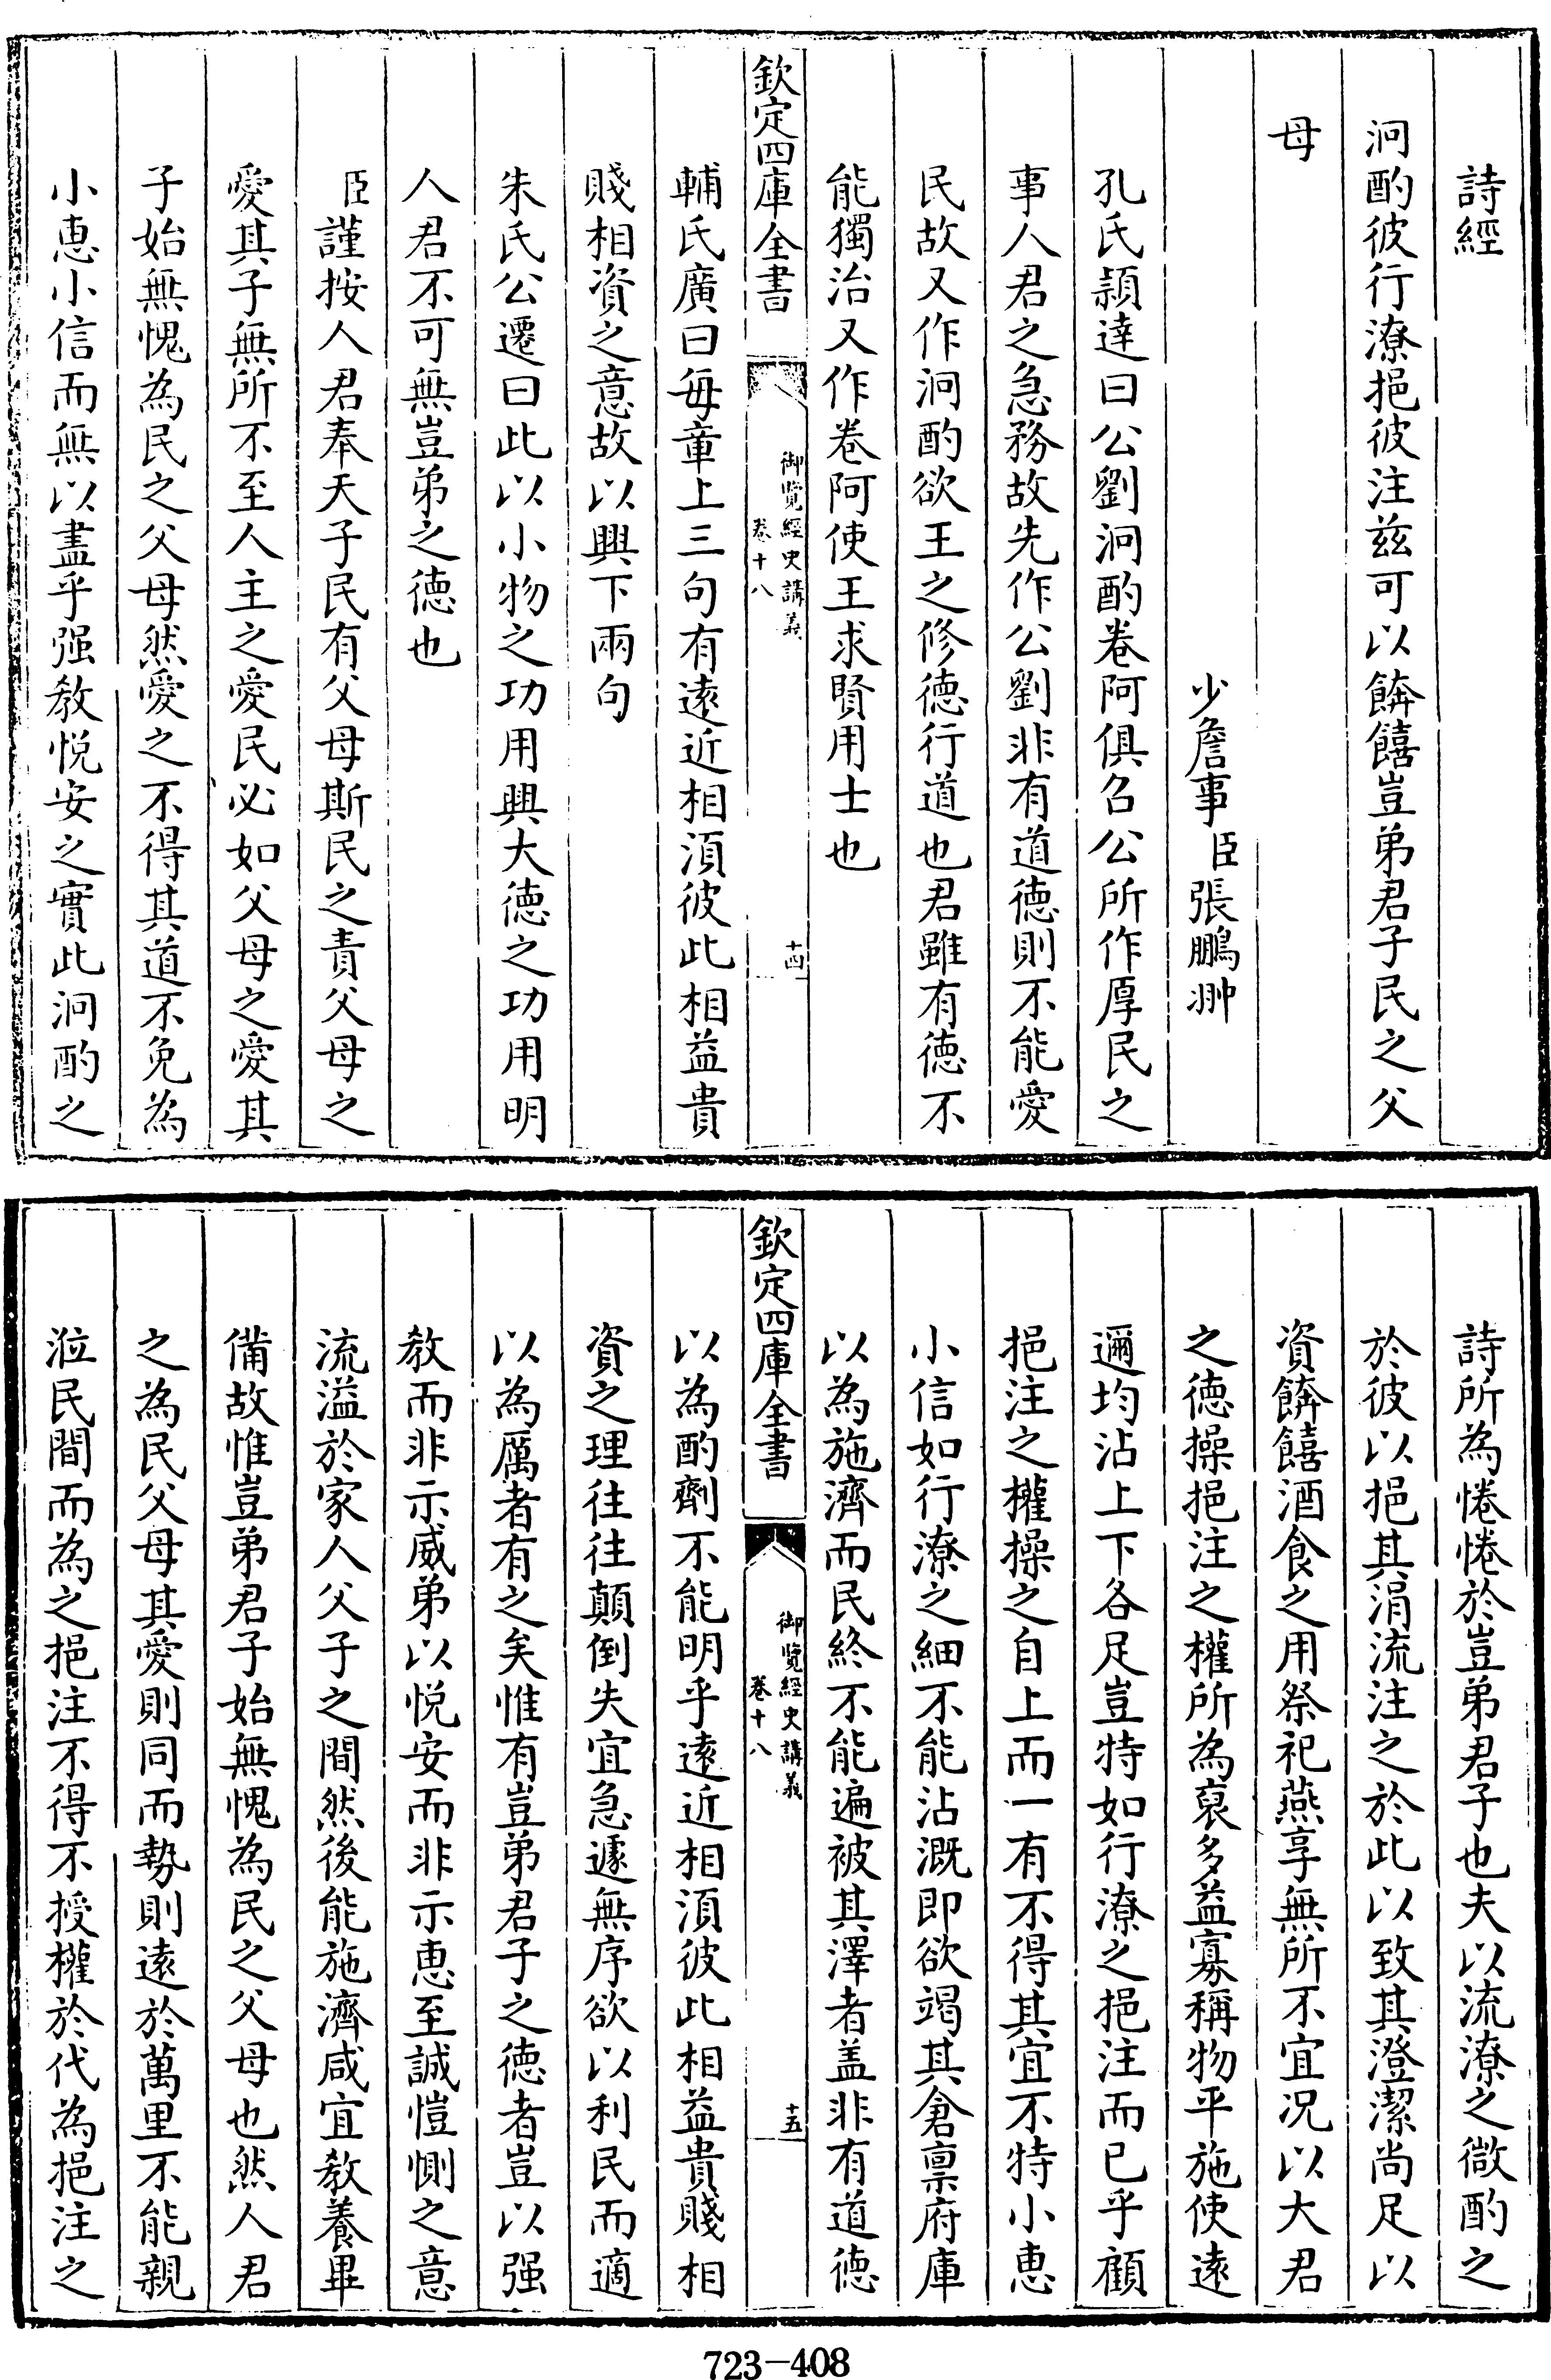 詩經
泂酌彼行潦挹彼注兹可以餴饎豈弟君子民之父
母
少詹事臣張鵬翀
孔氏頴達曰公劉泂酌卷阿俱召公所作厚民之
事人君之急務故先作公劉非有道徳則不能愛
民故又作泂酌欲王之修徳行道也君雖有徳不
能獨治又作卷阿使王求賢用士也
欽定四庫全書
御覽經史講義
卷十八
十四
輔氏廣曰每章上三句有逺近相湏彼此相益貴
賤相資之意故以興下兩句
朱氏公遷曰此以小物之功用興大徳之功用明
人君不可無豈弟之徳也
臣謹按人君奉天子民有父母斯民之責父母之
愛其子無所不至人主之愛民必如父母之愛其
子始無愧為民之父母然愛之不得其道不免為
小惠小信而無以盡乎强教悦安之實此泂酌之
詩所為惓惓於豈弟君子也夫以流潦之微酌之
於彼以挹其涓流注之於此以致其澄潔尚足以
資餴饎酒食之用祭祀燕享無所不宜况以大君
之徳操挹注之權所為裒多益寡稱物平施使逺
邇均沾上下各足豈特如行潦之挹注而已乎顧
挹注之權操之自上而一有不得其宜不特小惠
小信如行潦之細不能沾溉即欲竭其倉禀府庫
以為施濟而民終不能遍被其澤者盖非有道徳
欽定四庫全書
御覽經史講義
卷十八
十五
以為酌劑不能明乎逺近相湏彼此相益貴賤相
資之理往往顛倒失宜急遽無序欲以利民而適
以為厲者有之矣惟有豈弟君子之徳者豈以强
教而非示威弟以悦安而非示惠至誠愷惻之意
流溢於家人父子之間然後能施濟咸宜教養畢
備故惟豈弟君子始無愧為民之父母也然人君
之為民父母其愛則同而勢則逺於萬里不能親
涖民間而為之挹注不得不授權於代為挹注之
723-408